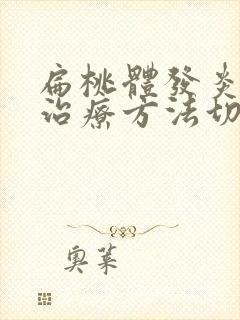 扁桃體發炎
治療方法切
奧萊